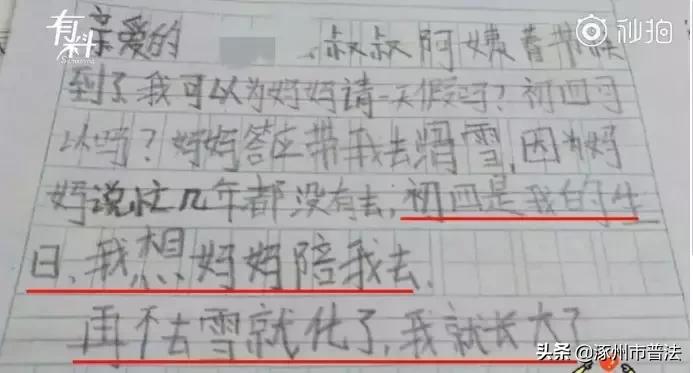 有料
秒拍
亲爱的 、叔叔阿姨春节快
到了我可以为妈妈请一天假吗?初四可
以吗?妈妈答应带我去滑雪,因为妈
妈说忙几年都没有去,初四是我的生
日,我想妈妈陪我去.
再不去雪就化了,我就长大了
头条 @涿州市普法